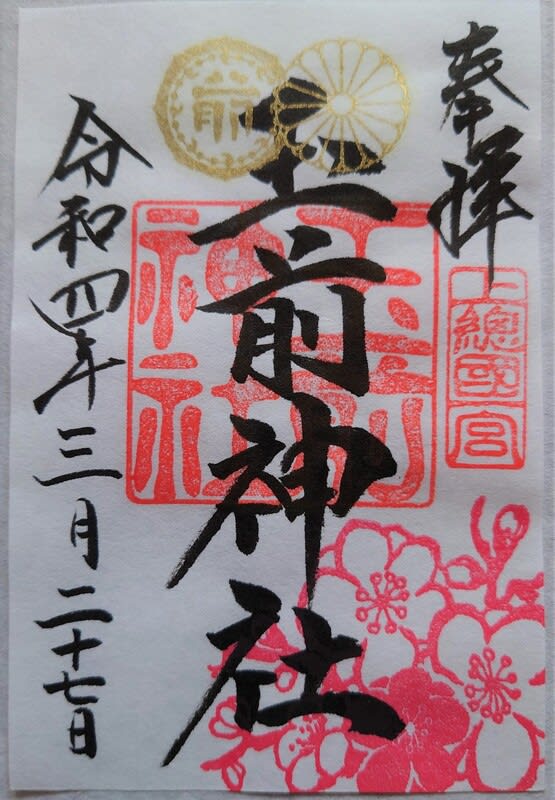 奉拝
上總國一宮
玉前神社
玉前神社
前
令和四年三月二十七日